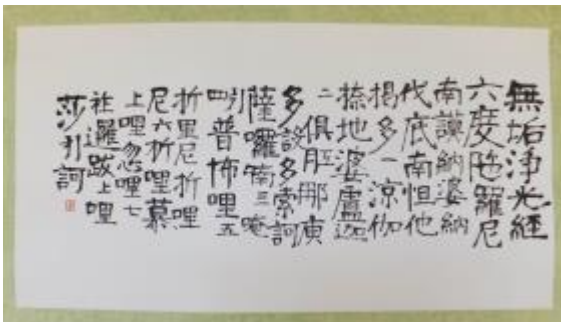 無垢淨光經
六度陁羅尼
南謨納婆納
伐底南怛他
揭多一涼伽
捺地婆盧迦
二俱胝那庾
多設多索訶
薩囉南三唵
引四普怖哩五
折里尼折哩
尼六折哩慕
上哩忽哩七
社邏跋上哩
莎引訶